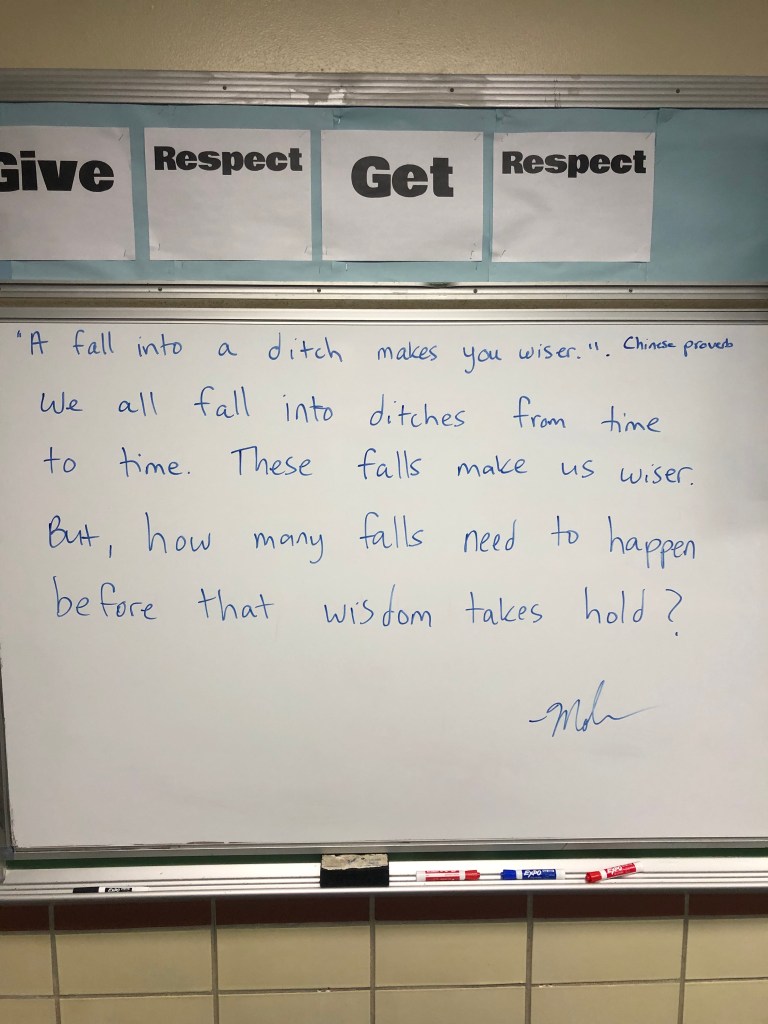 Give Respect Get Respect
"A fall into a ditch makes you wiser.". Chinese proverb
We all fall into ditches from time
to time. These falls make us wiser.
But, how many falls need to happen
before that wisdom takes hold?
EXPO EXPO EXPO